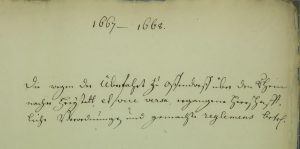 1667–1668.
Die wegen der Überfahrt zu Offendorff über den Rhein
nacher et vice versa, ergangene Herrschafft-
liche Verordnungen und gemachte reglemens betref.